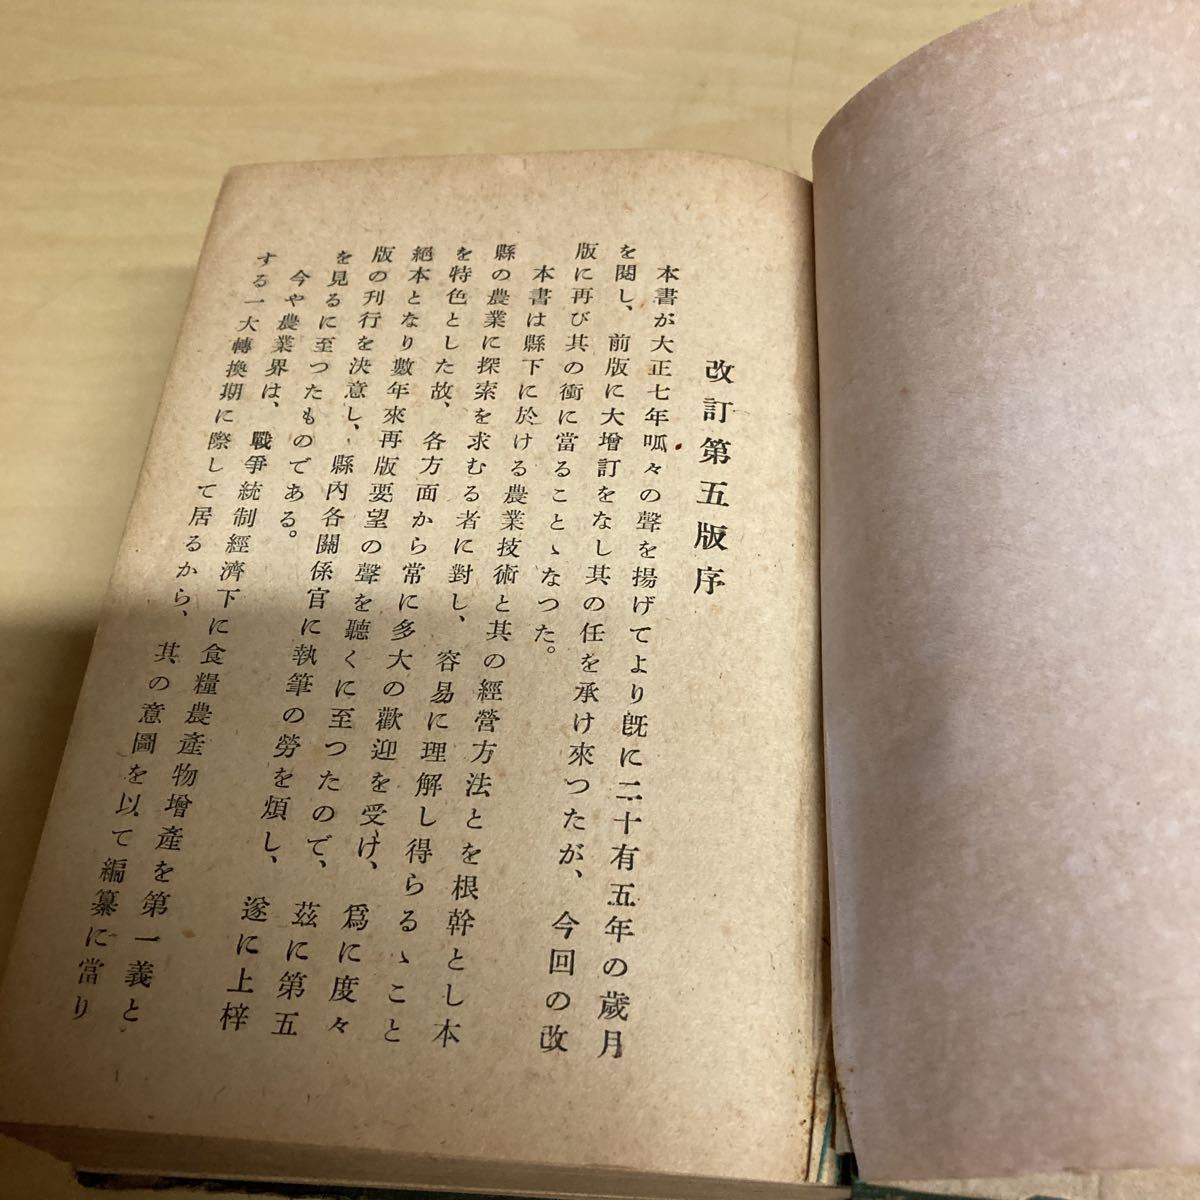 改訂第五版序
本書が大正七年呱々の聲を揚げてより既に二十有五年の歲月
を閱し、前版に大增訂をなし其の任を承け來つたが、今回の改
版に再び其の衝に當ることゝなつた。
本書は縣下に於ける農業技術と其の經營方法とを根幹とし本
縣の農業に探索を求むる者に對し、容易に理解し得らるゝこと
を特色とした故、各方面から常に多大の歡迎を受け、爲に度々
絕本となり數年來再版要望の聲を聽くに至つたので、玆に第五
版の刊行を決意し、縣內各關係官に執筆の勞を煩し、遂に上梓
を見るに至つたものである。
今や農業界は、戰爭統制經濟下に食糧農產物增產を第一義と
する一大轉換期に際して居るから、其の意圖を以て編纂に當り